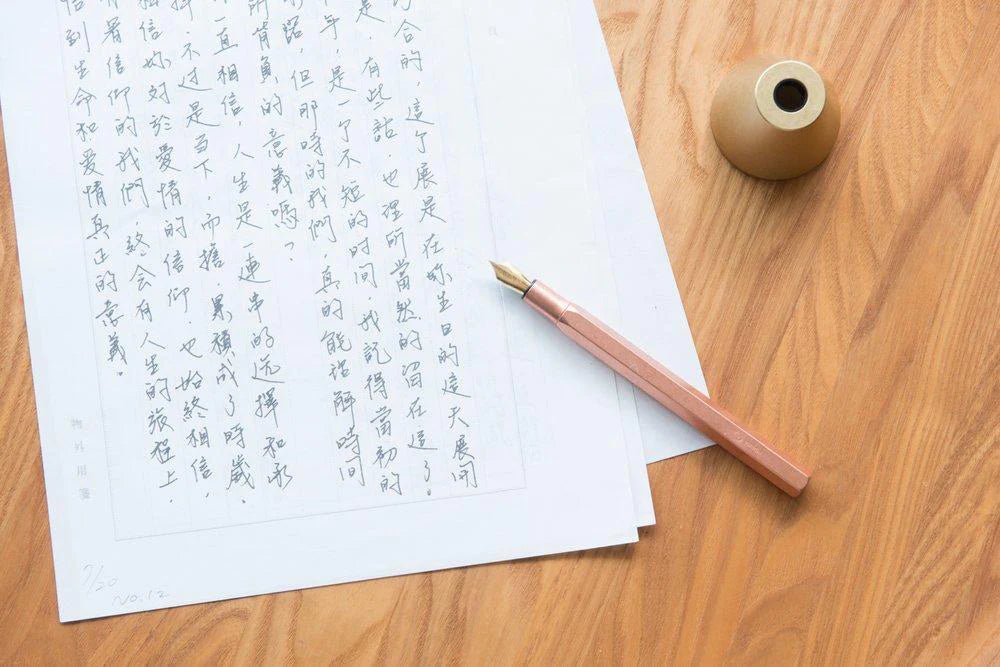 合的，這个展是在妳生日的這天展開
是，有些話，也理所當然的留在這了。
年，是一个不短的时间，我記得當初的
諾，但那時的我們，真的能理解時間
所背負的意義嗎？
一直相信，人生是一連串的选擇和承
擇，不过是当下，而擔，累積成了時歲。
相信妳对於愛情的信仰，也始終相信，
有著信仰的我們，終会有人生的旅程上，
悟到生命和爱情真正的意義。
物外用箋
7/20
No.12